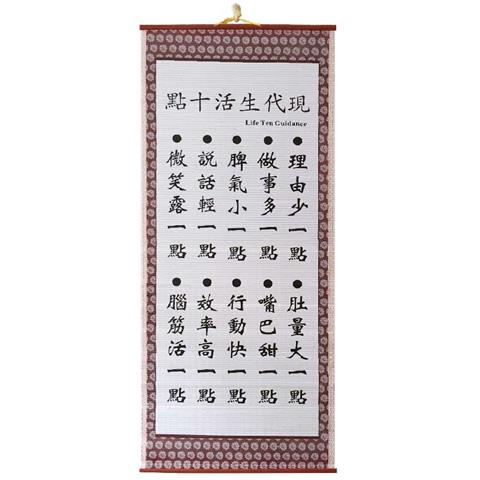 現代生活十點
Life Ten Guidance
●理由少一點
●做事多一點
●脾氣小一點
●說話輕一點
●微笑露一點
●肚量大一點
●嘴巴甜一點
●行動快一點
●效率高一點
●腦筋活一點